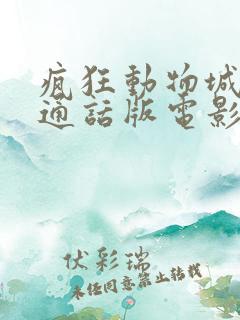 瘋狂動物城
通話版電影
伏彩瑞
未经同意禁止转载